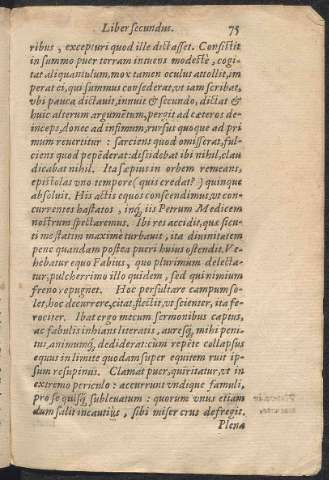 Liber secundus. 75
ribus, excepturi quod ille dictasset. Consistit
in summo puer terram intuens modeste, cogi-
tat aliquantulum, mox tamen oculus attollit, im
perat ei, qui summus consederat, vt iam scribat,
vbi pauca dictauit, innuit & secundo, dictat &
huic alterum argumẽtum, pergit ad cæteros de-
inceps, donec ad infimum, rursus quoque ad pri
mum reuertitur: sarciens quod omisserat, ful-
ciens quod pepẽderat: desidebat ibi nihil, clau
dicabat nihil. Ita sæpius in orbem remeans,
epistolas vno tempore (quis credat?) quinque
absoluit. His actis equos conscendimus, vt con-
currentes hastatos, inq́, iis Petrum Medicem
nostrum spectaremus. Ibi res accidit, quæ sicu-
ti mestatim maximè turbauit, ita diuinitatem
penè quandam postea pueri huius ostendit. Ve-
hebatur equo Fabius, quo plurimum delecta-
tur, pulcherrimo illo quidem, sed qui nimium
freno repugnet. Hoc persultare campum so-
let, hoc decurrere, citat, flectit, vt scienter, ita fe-
rociter. Ibat ergo mecum sermonibus captus,
ac fabulis inhians literatis, auresq́, mihi peni-
tus, animumq́, dediderat: cùm repẽte collapsus
equus in limite quodam super equitem ruit ip-
sum resupinus. Clamat puer, quiritatur, vt in
extremo periculo: accurrunt vndique famuli,
pro se quisq́, subleuatum: quorum vnus etiam
dum salit incautiùs, sibi miser crus defregit.
Plena